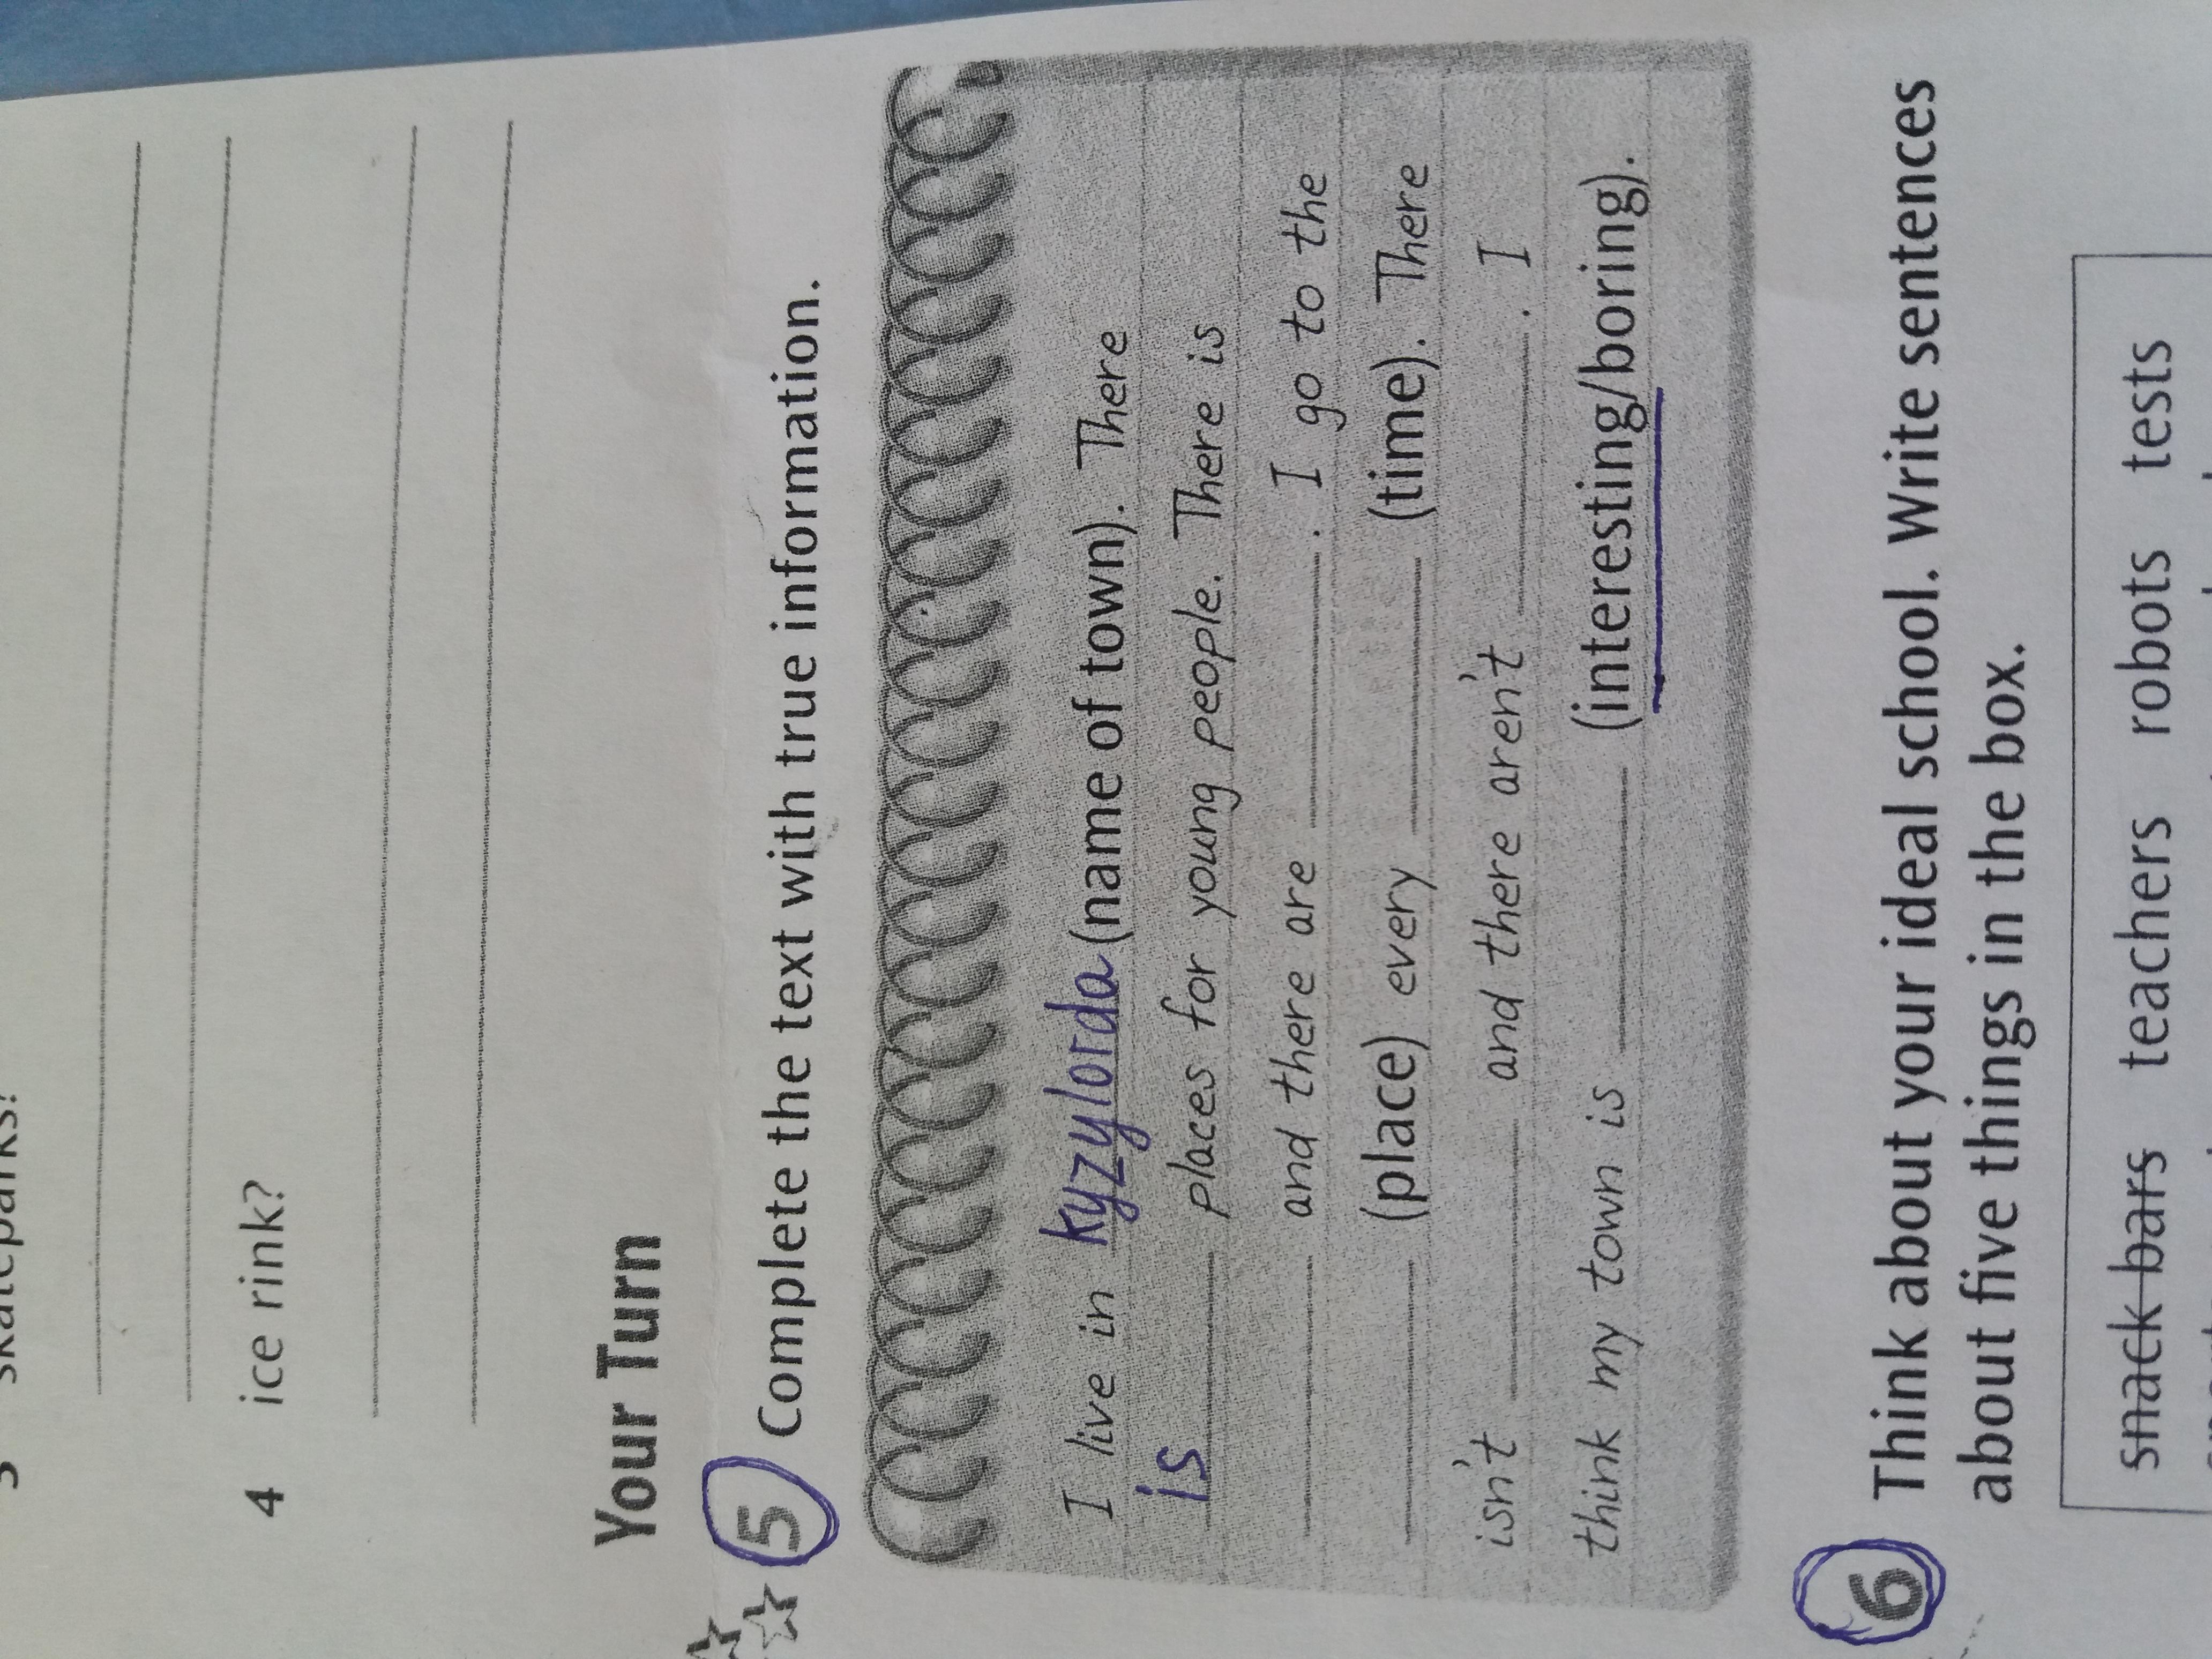 4 ice rink?
Your Turn
5 Complete the text with true information.
I live in kyzylorda (name of town). There
is places for young people. There is
and there are ____. I go to the
____ (place) every ____ (time). There
isn't ____ and there aren't ____. I
think my town is ____ (interesting/boring).
6 Think about your ideal school. Write sentences
about five things in the box.
snack bars teachers robots tests